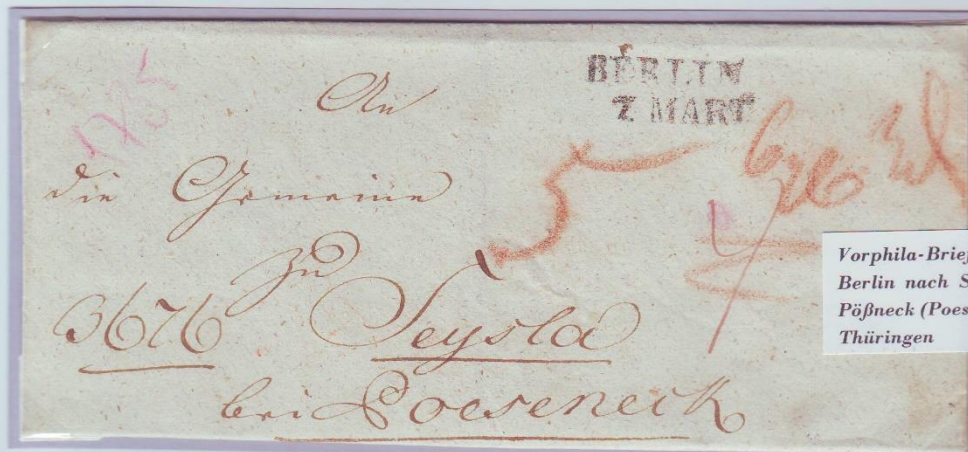 BERLIN
7 MART
An
die Gemeine
zu
3676 Seysla
bei Poeseneck
5
Vorphila-Brief
Berlin nach S
Pößneck (Poes
Thüringen